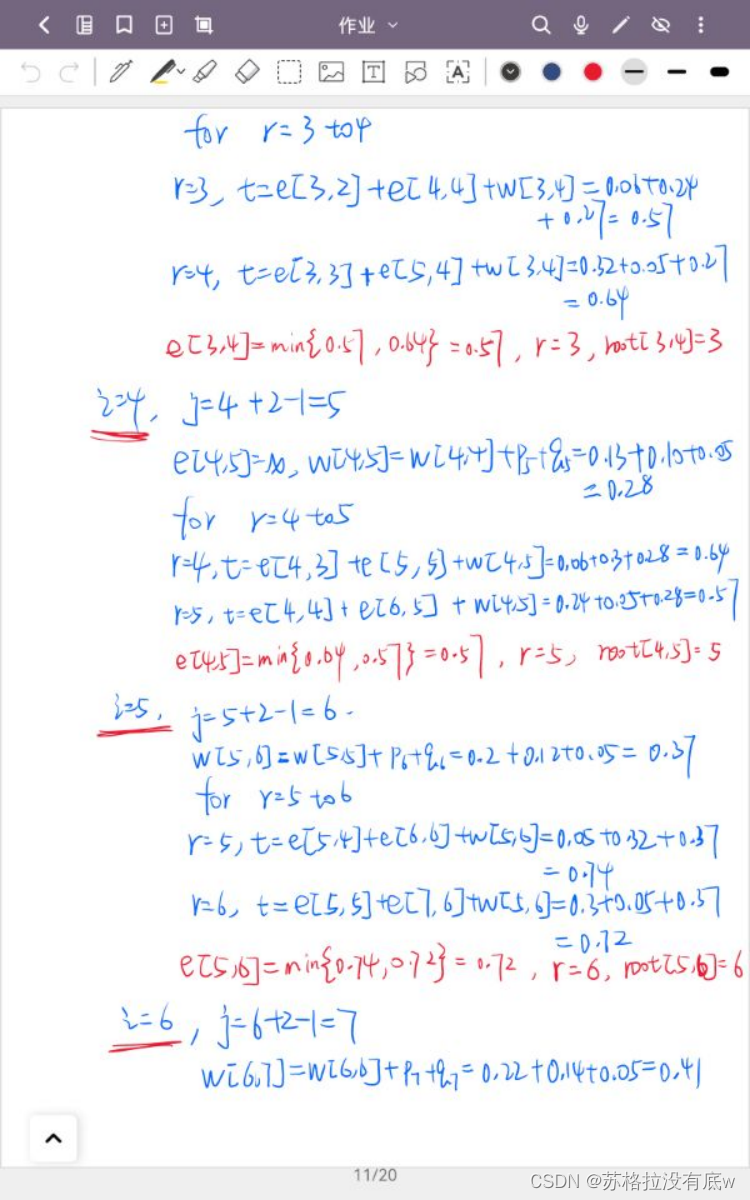 作业
for r=3 to4
r=3, t=e[3,2]+e[4,4]+w[3,4]=0.06+0.24
+0.27=0.57
r=4, t=e[3,3]+e[5,4]+w[3,4]=0.32+0.05+0.27
=0.64
e[3,4]=min{0.57,0.64}=0.57, r=3, root[3,4]=3
i=4, j=4+2-1=5
e[4,5]=∞, w[4,5]=w[4,4]+p5+q5=0.13+0.10+0.05
=0.28
for r=4 to5
r=4, t=e[4,3]+e[5,5]+w[4,5]=0.06+0.3+0.28=0.64
r=5, t=e[4,4]+e[6,5]+w[4,5]=0.24+0.05+0.28=0.57
e[4,5]=min{0.64,0.57}=0.57, r=5, root[4,5]=5
i=5, j=5+2-1=6.
w[5,6]=w[5,5]+p6+q6=0.2+0.12+0.05=0.37
for r=5 to6
r=5, t=e[5,4]+e[6,6]+w[5,6]=0.05+0.32+0.37
=0.74
r=6, t=e[5,5]+e[7,6]+w[5,6]=0.3+0.05+0.37
=0.72
e[5,6]=min{0.74,0.72}=0.72, r=6, root[5,6]=6
i=6, j=6+2-1=7
w[6,7]=w[6,6]+p7+q7=0.22+0.14+0.05=0.41
11/20
CSDN @苏格拉没有底w